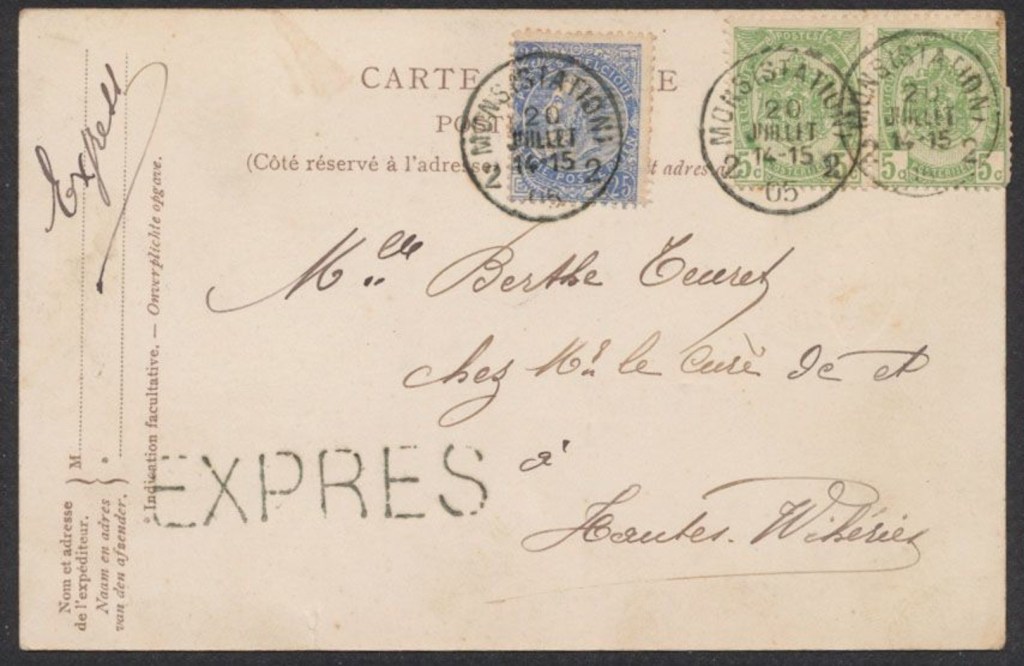 CARTE E
POST
(Côté réservé à l'adresse t adres
BELGIQUE
POSTE
25
MONS (STATION)
20
JUILLET
14-15
2 2
05
POSTES
5c
MONS (STATION)
20
JUILLET
14-15
2 2
05
5c 5c
MONS (STATION)
JUILLET
14-15
2 2
Mlle Berthe
chez Mr le Curé
à
Hautes-Wihéries
EXPRES
Express
M
° Indication facultative. — Onverplichte opgave.
Nom et adresse
de l'expéditeur.
Naam en adres
van den afzender.